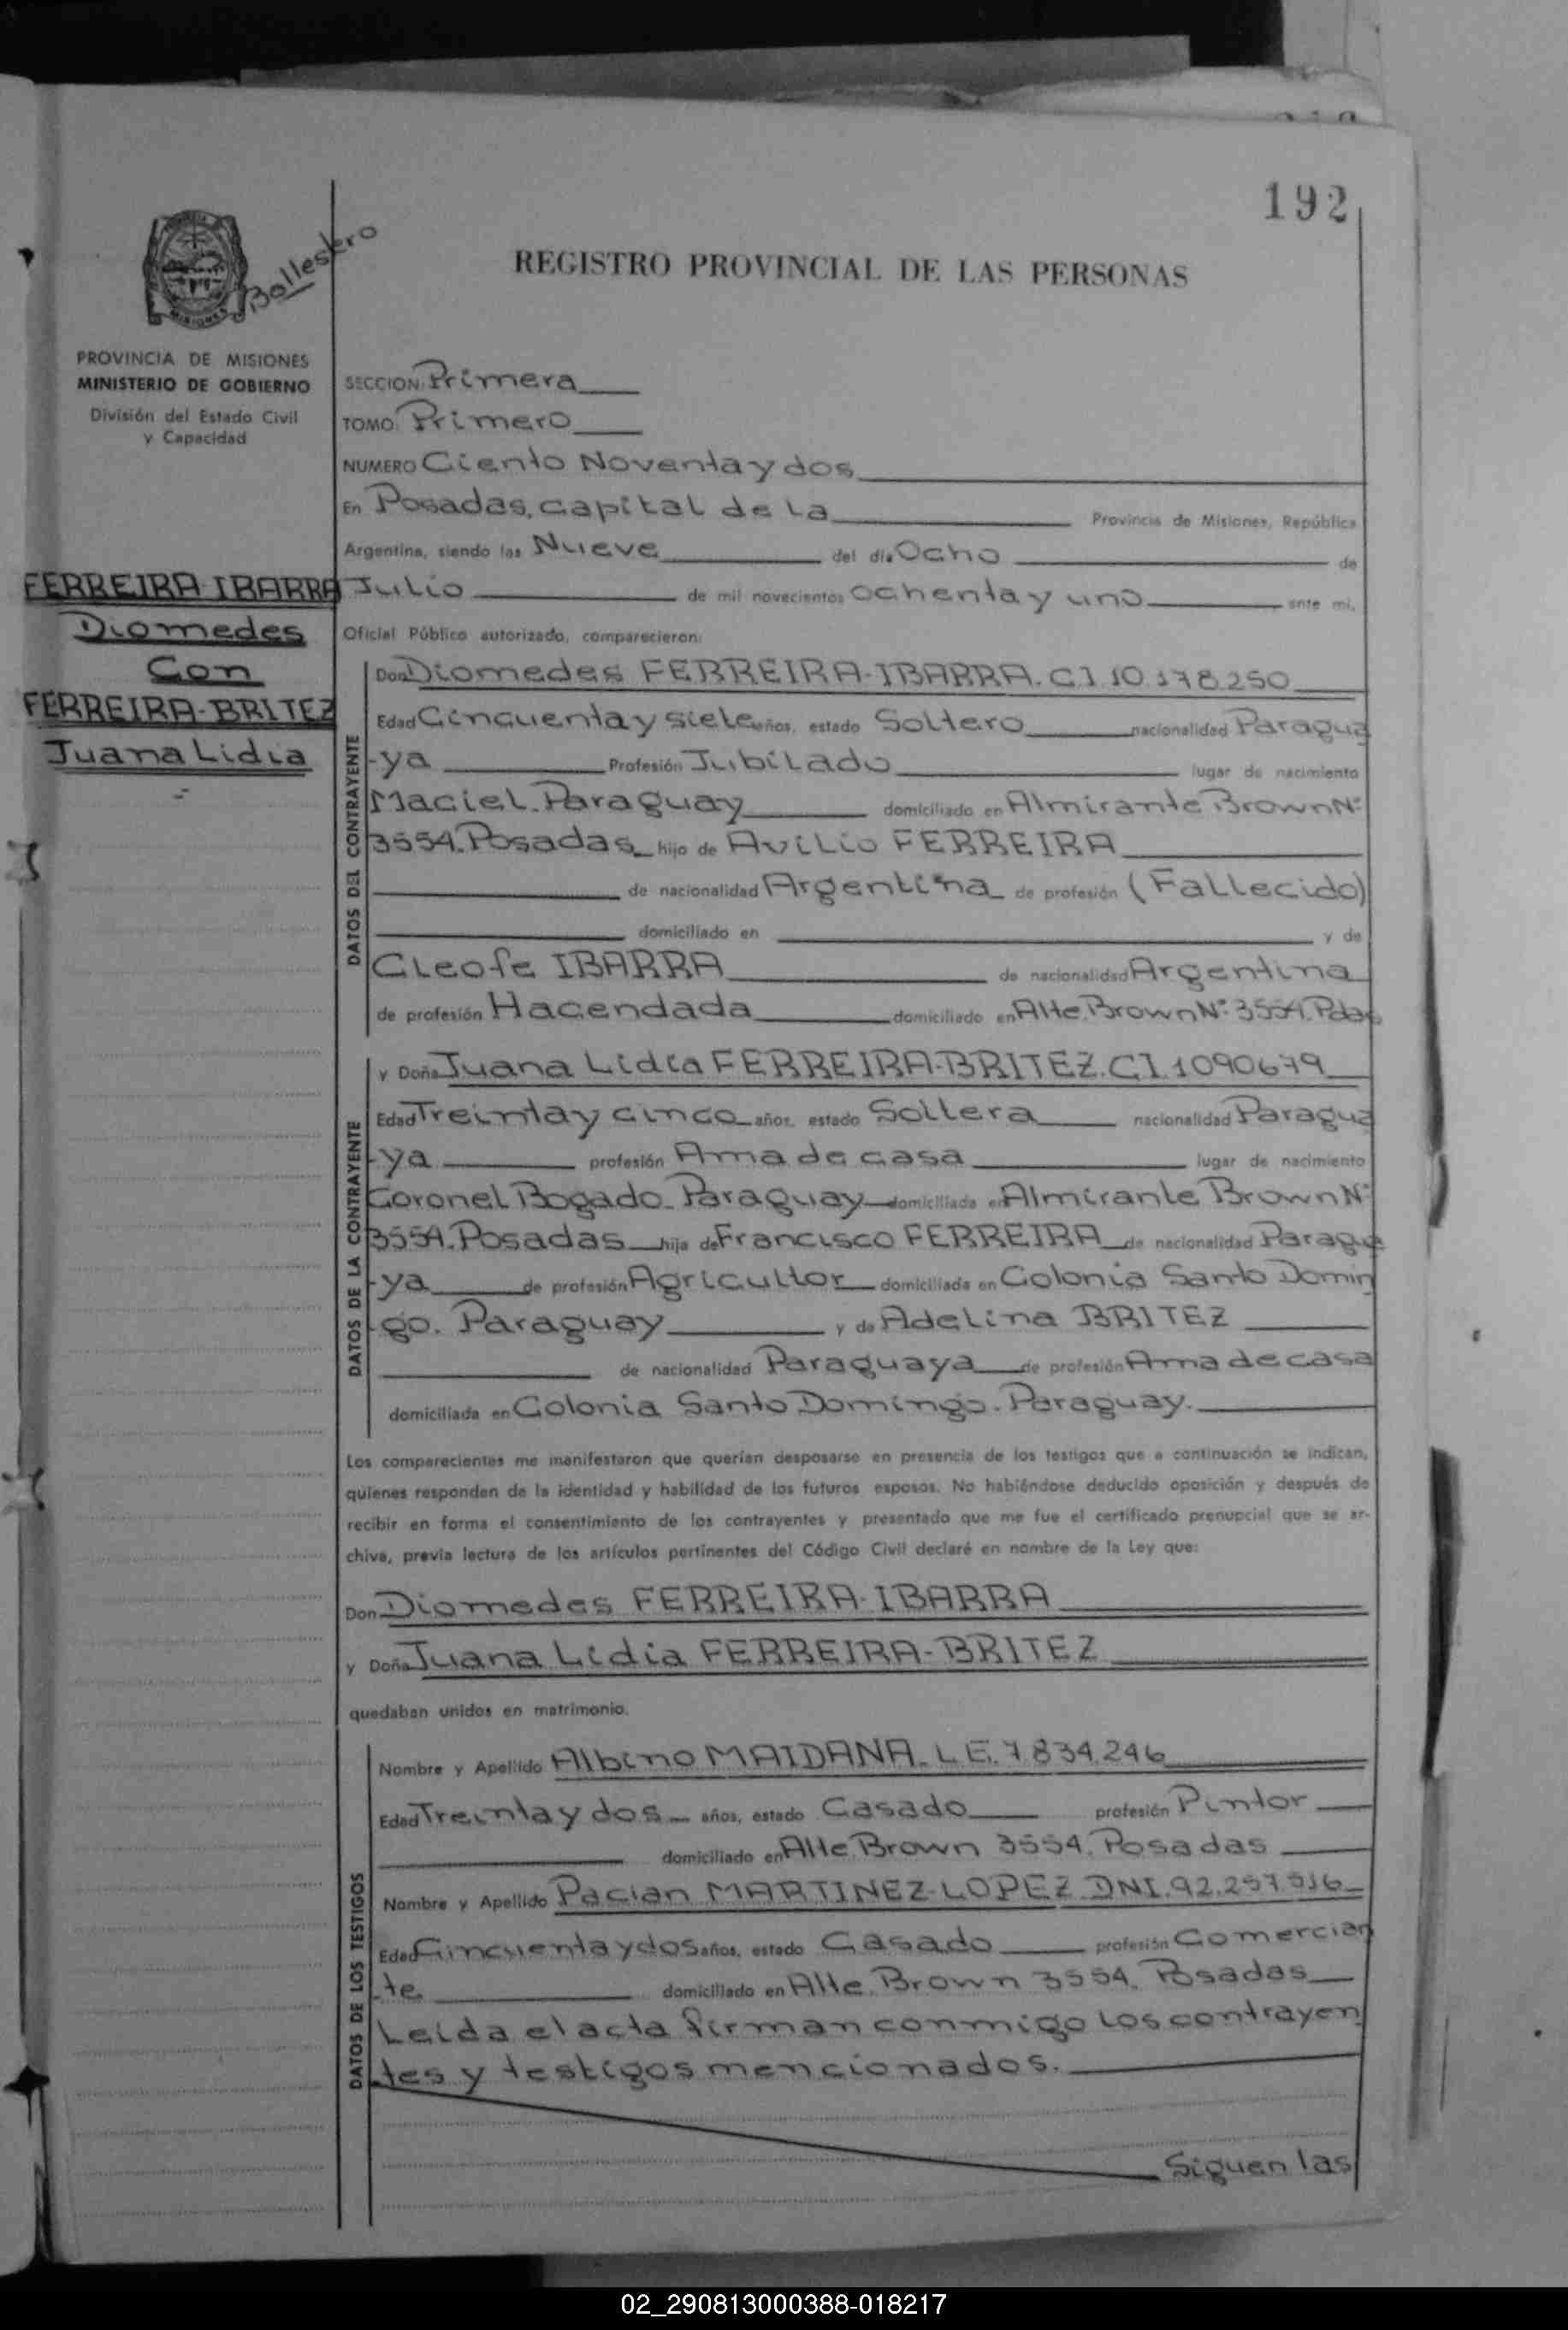 192
Ballestero
REGISTRO PROVINCIAL DE LAS PERSONAS
MISIONES
PROVINCIA DE MISIONES
MINISTERIO DE GOBIERNO
División del Estado Civil
y Capacidad
FERREIRA-IBARRA
Diomedes
Con
FERREIRA-BRITEZ
Juana Lidia
SECCION: Primera
TOMO: Primero
NUMERO Ciento Noventa y dos
En Posadas, capital de la Provincia de Misiones, República
Argentina, siendo las Nueve del día Ocho de
Julio de mil novecientos ochenta y uno ante mí,
Oficial Público autorizado, comparecieron:
DATOS DEL CONTRAYENTE
Don Diomedes FERREIRA-IBARRA. C.I. 10.178.250
Edad Cincuenta y siete años, estado Soltero nacionalidad Paragua
-ya Profesión Jubilado lugar de nacimiento
Maciel. Paraguay domiciliado en Almirante Brown Nº
3554. Posadas hijo de Avilio FERREIRA
de nacionalidad Argentina de profesión (Fallecido)
domiciliado en y de
Cleofe IBARRA de nacionalidad Argentina
de profesión Hacendada domiciliado en Alte. Brown Nº 3554. Pdas
DATOS DE LA CONTRAYENTE
y Doña Juana Lidia FERREIRA-BRITEZ. C.I. 1090679
Edad Treinta y cinco años, estado Soltera nacionalidad Paragua
-ya profesión Ama de casa lugar de nacimiento
Coronel Bogado. Paraguay domiciliada en Almirante Brown Nº
3554. Posadas hija de Francisco FERREIRA de nacionalidad Paragua
-ya de profesión Agricultor domiciliada en Colonia Santo Domin
-go. Paraguay y de Adelina BRITEZ
de nacionalidad Paraguaya de profesión Ama de casa
domiciliada en Colonia Santo Domingo. Paraguay.
Los comparecientes me manifestaron que querían desposarse en presencia de los testigos que a continuación se indican,
quienes responden de la identidad y habilidad de los futuros esposos. No habiéndose deducido oposición y después de
recibir en forma el consentimiento de los contrayentes y presentado que me fue el certificado prenupcial que se ar-
chiva, previa lectura de los artículos pertinentes del Código Civil declaré en nombre de la Ley que:
Don Diomedes FERREIRA-IBARRA
y Doña Juana Lidia FERREIRA-BRITEZ
quedaban unidos en matrimonio.
DATOS DE LOS TESTIGOS
Nombre y Apellido Albino MAIDANA. L.E. 7.834.246
Edad Treinta y dos años, estado Casado profesión Pintor
domiciliado en Alte. Brown 3554. Posadas
Nombre y Apellido Pacian MARTINEZ-LOPEZ DNI. 92.257.516
Edad Cincuenta y dos años, estado Casado profesión Comercian
-te domiciliado en Alte. Brown 3554. Posadas
Leida el acta firman conmigo los contrayen
-tes y testigos mencionados.
Siguen las
02_290813000388-018217